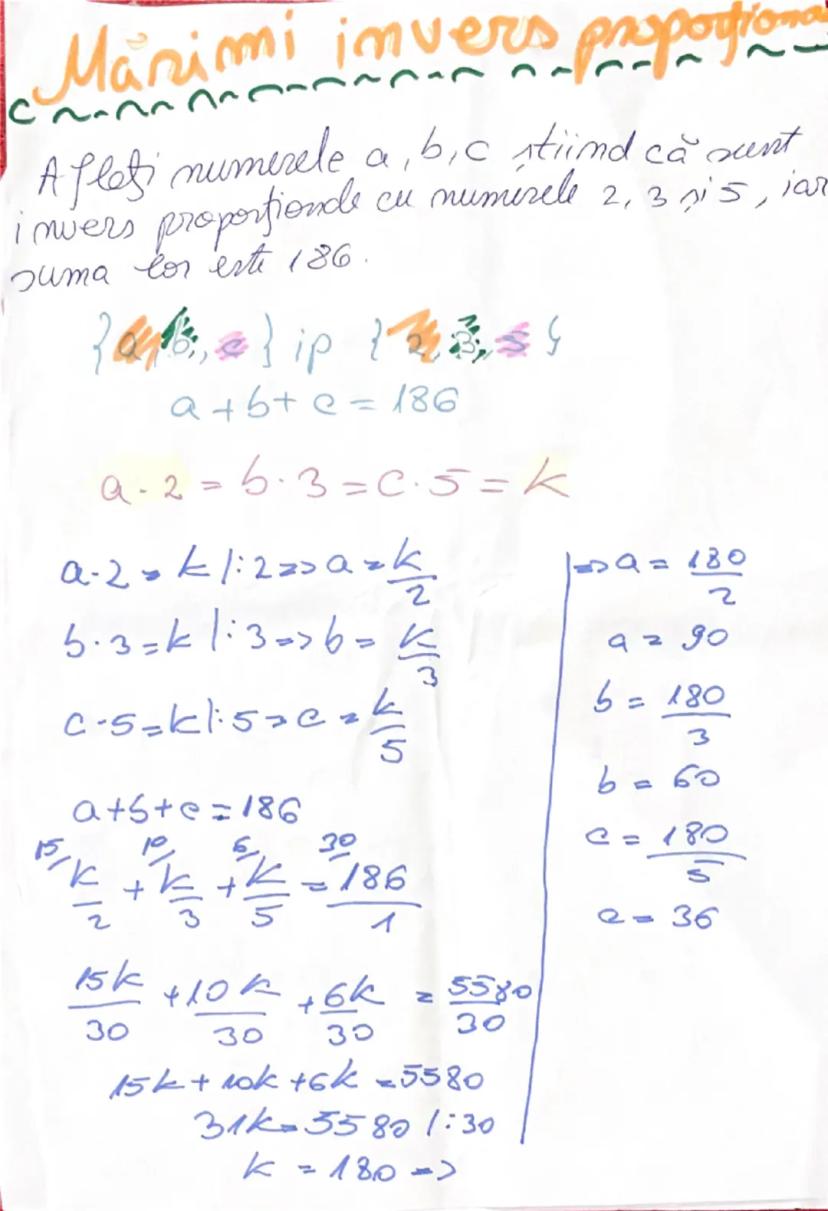 Mărimi invers proporționa
Aflați numerele a, b, c știind că sunt
invers proporționale cu numerele 2, 3 și 5, iar
suma lor este 186.
{a, b, c} ip {2, 3, 5}
a + b + c = 186
a · 2 = b · 3 = c · 5 = k
a · 2 = k |: 2 => a = k/2
b · 3 = k |: 3 => b = k/3
c · 5 = k |: 5 => c = k/5
a + b + c = 186
15/ 10/ 6/ 30/
k/2 + k/3 + k/5 = 186/1
15k/30 + 10k/30 + 6k/30 = 5580/30
15k + 10k + 6k = 5580
31k = 5580 /: 30
k = 180 =>
=> a = 180/2
a = 90
b = 180/3
b = 60
c = 180/5
c = 36